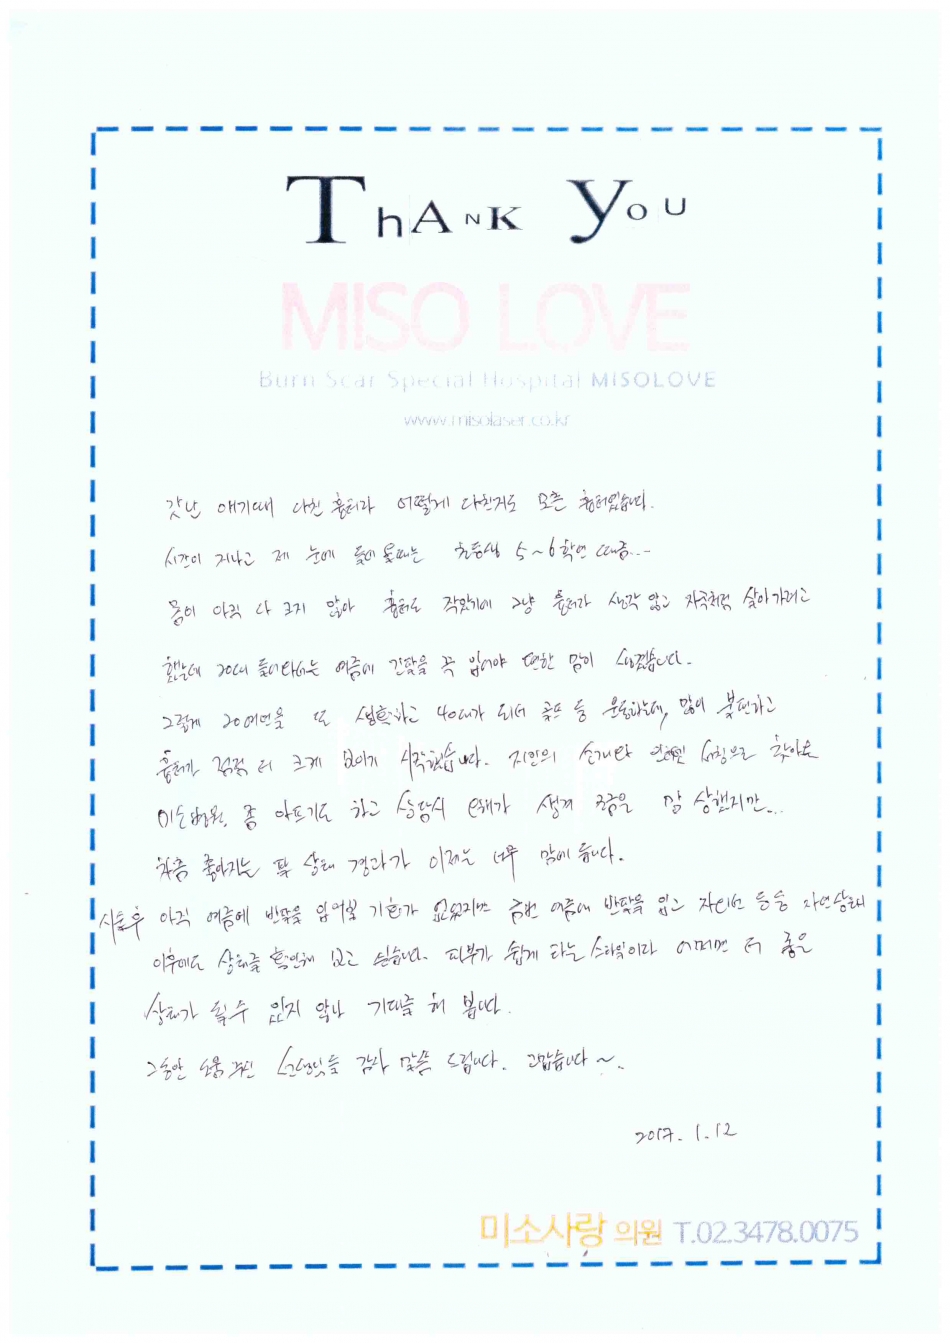 Thank You
MISO LOVE
Burn Scar Special Hospital MISOLOVE
www.misolaser.co.kr
갓난 애기때 다친 흉터라 어떻게 다친지도 모른 흉터였습니다.
시간이 지나고 제 눈에 들어 올때는 초등생 5~6학년 때쯤...
몸이 아직 다 크지 않아 흉터도 작았기에 그냥 흉터라 생각 않고 자국처럼 살아가려고
했는데 20대 들어와서는 여름에 긴팔을 꼭 입어야 편한 맘이 생겼습니다.
그렇게 20여년을 또 생활하고 40대가 되어 골프 등 운동하는데, 많이 불편하고
흉터가 점점 더 크게 보이기 시작했습니다. 지인의 소개와 인터넷 서칭으로 찾아온
미소병원. 좀 아프기도 하고 상담시 오해가 생겨 조금은 맘 상했지만...
차츰 좋아지는 팔 상태 결과가 이제는 너무 맘에 듭니다.
시술후 아직 여름에 반팔을 입어볼 기회가 없었지만 금번 여름에 반팔을 입고 자외선 등등 자연상태
이후에도 상태를 확인해 보고 싶습니다. 피부가 쉽게 타는 스타일이라 어쩌면 더 좋은
상태가 될수 있지 않나 기대를 해 봅니다.
그동안 도움 주신 선생님들 감사 말씀 드립니다. 고맙습니다~.
2017. 1. 12
미소사랑 의원 T.02.3478.0075